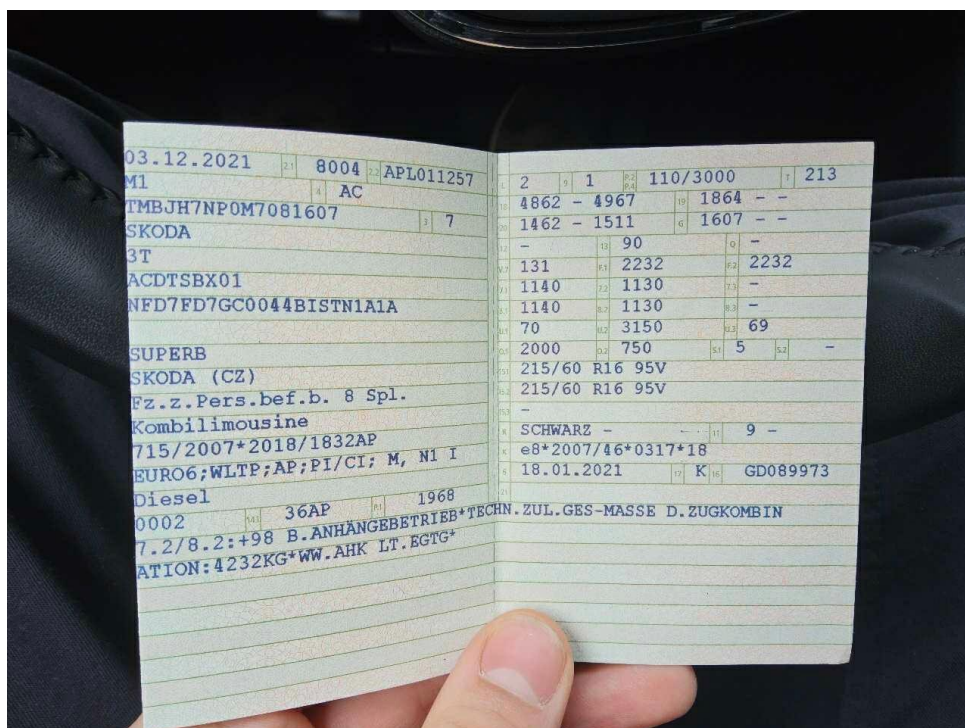 03.12.2021 2.1 8004 2.2 APL011257
M1 4 AC
TMBJH7NP0M7081607 3 7
SKODA
3T
ACDTSBX01
NFD7FD7GC0044BISTN1A1A
SUPERB
SKODA (CZ)
Fz.z.Pers.bef.b. 8 Spl.
Kombilimousine
715/2007*2018/1832AP
EURO6;WLTP;AP;PI/CI; M, N1 I
Diesel
0002 14.1 36AP P.1 1968
7.2/8.2:+98 B.ANHÄNGEBETRIEB*TECHN.ZUL.GES-MASSE D.ZUGKOMBIN
ATION:4232KG*WW.AHK LT.EGTG*
L 2 9 1 P.2 P.4 110/3000 T 213
18 4862 - 4967 19 1864 - -
20 1462 - 1511 G 1607 - -
12 - 13 90 Q -
V.7 131 F.1 2232 F.2 2232
7.1 1140 7.2 1130 7.3 -
8.1 1140 8.2 1130 8.3 -
U.1 70 U.2 3150 U.3 69
O.1 2000 O.2 750 S.1 5 S.2 -
15.1 215/60 R16 95V
15.2 215/60 R16 95V
15.3 -
R SCHWARZ - 11 9 -
K e8*2007/46*0317*18
6 18.01.2021 17 K 16 GD089973
21